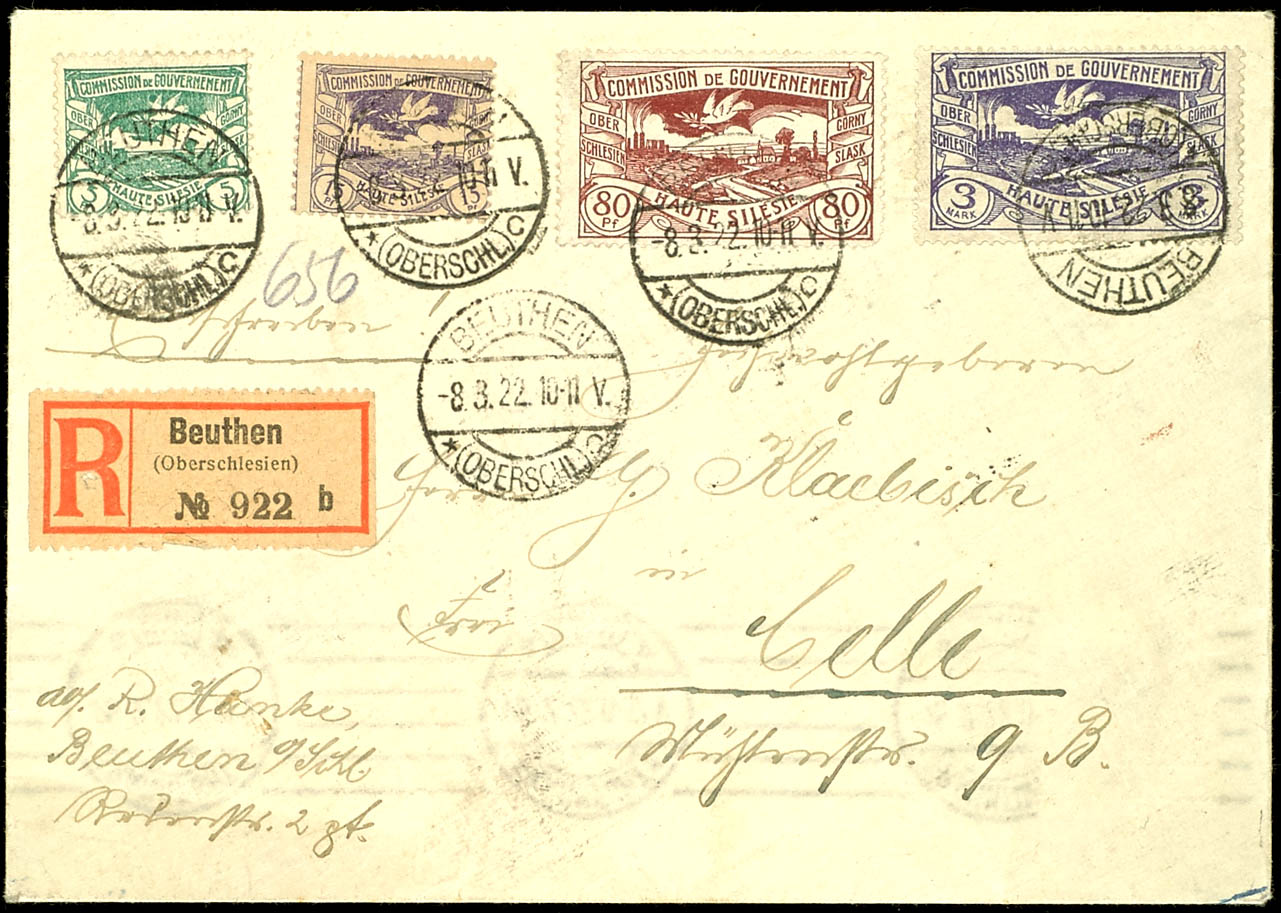 COMMISSION DE GOUVERNEMENT
OBER SCHLESIEN
GORNY SLASK
5 5
HAUTE SILESIE
COMMISSION DE GOUVERNEMENT
15 Pf 15
HAUTE SILESIE
COMMISSION DE GOUVERNEMENT
OBER SCHLESIEN
GORNY SLASK
80 Pf 80 Pf
HAUTE SILESIE
COMMISSION DE GOUVERNEMENT
OBER SCHLESIEN
GORNY SLASK
3 MARK 3 MARK
HAUTE SILESIE
BEUTHEN
-8.3.22.10-11 V.
*(OBERSCHL)C
10-11 V.
*(OBERSCHL)C
-8.3.22.10-11 V.
*(OBERSCHL)C
BEUTHEN
656
Einschreiben!
BEUTHEN
-8.3.22.10-11 V.
*(OBERSCHL)C
R
Beuthen
(Oberschlesien)
№ 922 b
Herrn G. Klaebisch
in
Celle
9 B.
R. Hanke,
Beuthen O/Schl.